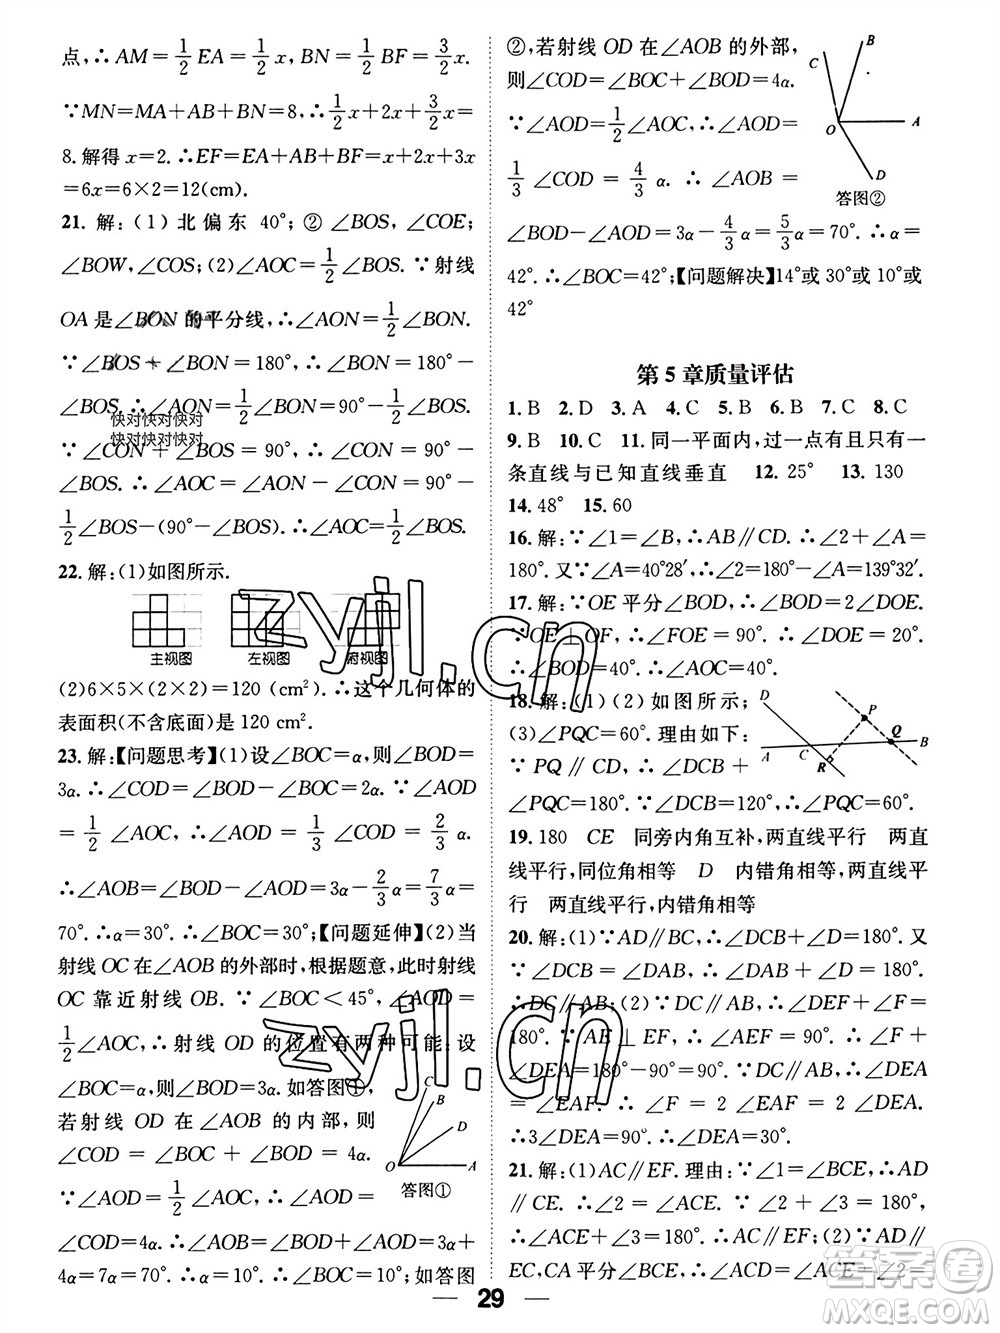 点,∴AM=1/2EA=1/2x,BN=1/2BF=3/2x.
∵MN=MA+AB+BN=8,∴1/2x+2x+3/2x=
8.解得x=2.∴EF=EA+AB+BF=x+2x+3x
=6x=6×2=12(cm).
21.解:(1)北偏东 40°;②∠BOS,∠COE;
∠BOW,∠COS;(2)∠AOC=1/2∠BOS.∵射线
OA是∠BON的平分线,∴∠AON=1/2∠BON.
∵∠BOS+∠BON=180°,∴∠BON=180°-
∠BOS.∴∠AON=1/2∠BON=90°-1/2∠BOS.
快对快对快对
快对快对快对
∵∠CON+∠BOS=90°,∴∠CON=90°-
∠BOS.∴∠AOC=∠AON-∠CON=90°-
1/2∠BOS-(90°-∠BOS).∴∠AOC=1/2∠BOS.
22.解:(1)如图所示.
主视图 左视图 俯视图
(2)6×5×(2×2)=120(cm²).∴这个几何体的
表面积(不含底面)是120 cm².
23.解:【问题思考】(1)设∠BOC=α,则∠BOD=
3α.∴∠COD=∠BOD-∠BOC=2α.∵∠AOD
=1/2∠AOC,∴∠AOD=1/3∠COD=2/3α.
∴∠AOB=∠BOD-∠AOD=3α-2/3α=7/3α=
70°.∴α=30°.∴∠BOC=30°;【问题延伸】(2)当
射线OC在∠AOB的外部时,根据题意,此时射线
OC靠近射线OB.∵∠BOC<45°,∠AOD=
1/2∠AOC,∴射线OD的位置有两种可能.①设
∠BOC=α,则∠BOD=3α.如答图①,
若射线OD在∠AOB的内部,则
∠COD=∠BOC+∠BOD=4α.
∵∠AOD=1/2∠AOC,∴∠AOD=
∠COD=4α.∴∠AOB=∠BOD+∠AOD=3α+
4α=7α=70°.∴α=10°.∴∠BOC=10°;如答图
C
D
O A
答图①
②,若射线OD在∠AOB的外部,
则∠COD=∠BOC+∠BOD=4α.
∵∠AOD=1/2∠AOC,∴∠AOD=
1/3∠COD=4/3α.∴∠AOB=
∠BOD-∠AOD=3α-4/3α=5/3α=70°.∴α=
42°.∴∠BOC=42°;【问题解决】14°或30°或10°或
42°
B
C
O A
D
答图②
第5章质量评估
1.B 2.D 3.A 4.C 5.C 6.B 7.C 8.C
9.B 10.C 11.同一平面内,过一点有且只有一
条直线与已知直线垂直 12.25° 13.130
14.48° 15.60
16.解:∵∠1=∠B,∴AB∥CD.∴∠2+∠A=
180°.又∵∠A=40°28′,∴∠2=180°-∠A=139°32′.
17.解:∵OE平分∠BOD,∴∠BOD=2∠DOE.
∵OE⊥OF,∴∠FOE=90°.∴∠DOE=20°.
∴∠BOD=40°.∴∠AOC=40°.
18.解:(1)(2)如图所示;
(3)∠PQC=60°.理由如下:
∵PQ∥CD,∴∠DCB+
∠PQC=180°.∵∠DCB=120°,∴∠PQC=60°.
D
P
Q
B
A C R
19.180 CE 同旁内角互补,两直线平行 两直
线平行,同位角相等 D 内错角相等,两直线平
行 两直线平行,内错角相等
20.解:(1)∵AD∥BC,∴∠DCB+∠D=180°.又
∵∠DCB=∠DAB,∴∠DAB+∠D=180°.
∴DC∥AB;(2)∵DC∥AB,∴∠DEA+∠F=
180°.∵AE⊥EF,∴∠AEF=90°.∴∠F+
∠DEA=180°-∠AEF=90°.∵∠DEA=
∠EAF.∴∠F=2∠EAF=2∠DEA.
∴3∠DEA=90°.∴∠DEA=30°.
21.解:(1)AC∥EF.理由:∵∠1=∠BCE,∴AD
∥CE.∴∠2=∠ACE.∵∠2+∠3=180°,
∴∠ACE+∠3=180°.∴AC∥EF;(2)∵AD∥
EC,CA平分∠BCE,∴∠ACD=∠ACE=∠2=
29
zyjl.cn
zyjl.cn
答案圈
MXQE.COM